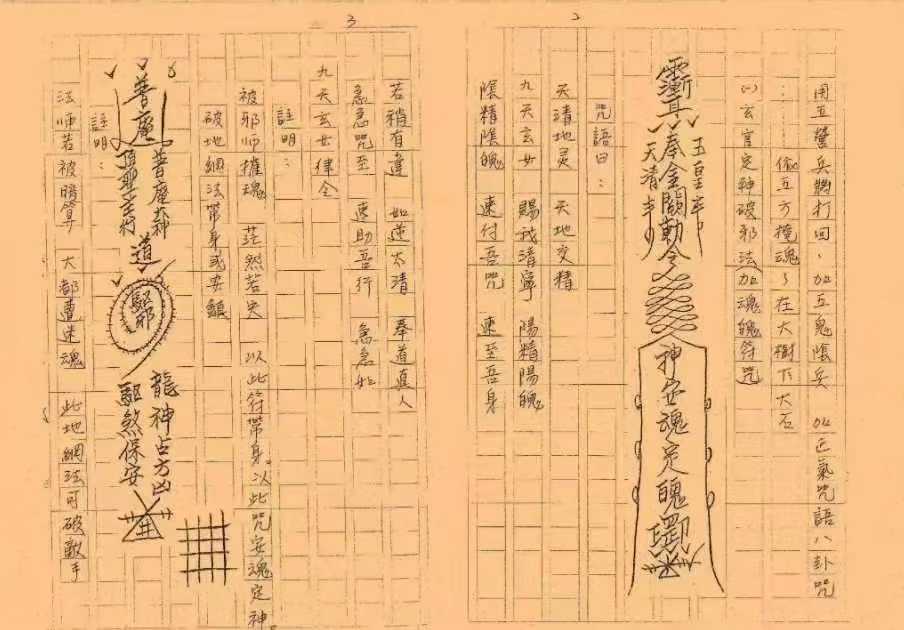 2
用五營兵馬打回，加五鬼陰兵 加正氣咒語八卦咒
：：偷五方掩魂了在大樹下大石
(一)玄官定神破邪法(加魂魄符咒
玉皇
奉金闕勅令
天清
神安魂定魄
咒語曰：
天清地灵 天地交精
九天玄女 賜我清寧 陽精陽魄
陰精陰魄 速付吾咒 速至吾身
3
若稍有違 如逆太清 奉道真人
急急咒至 速助吾行 急急如
九天玄女律令
註明：
被邪師摧魂 茫然若失 以此符帶身。以此咒安魂定神。
破地網法帶身或安鎮
普庵
普庵大神
道
驅邪
龍神占方凶
驅煞保安
註明：
法师若被暗算 大都遭迷魂 此地網法可破敵手